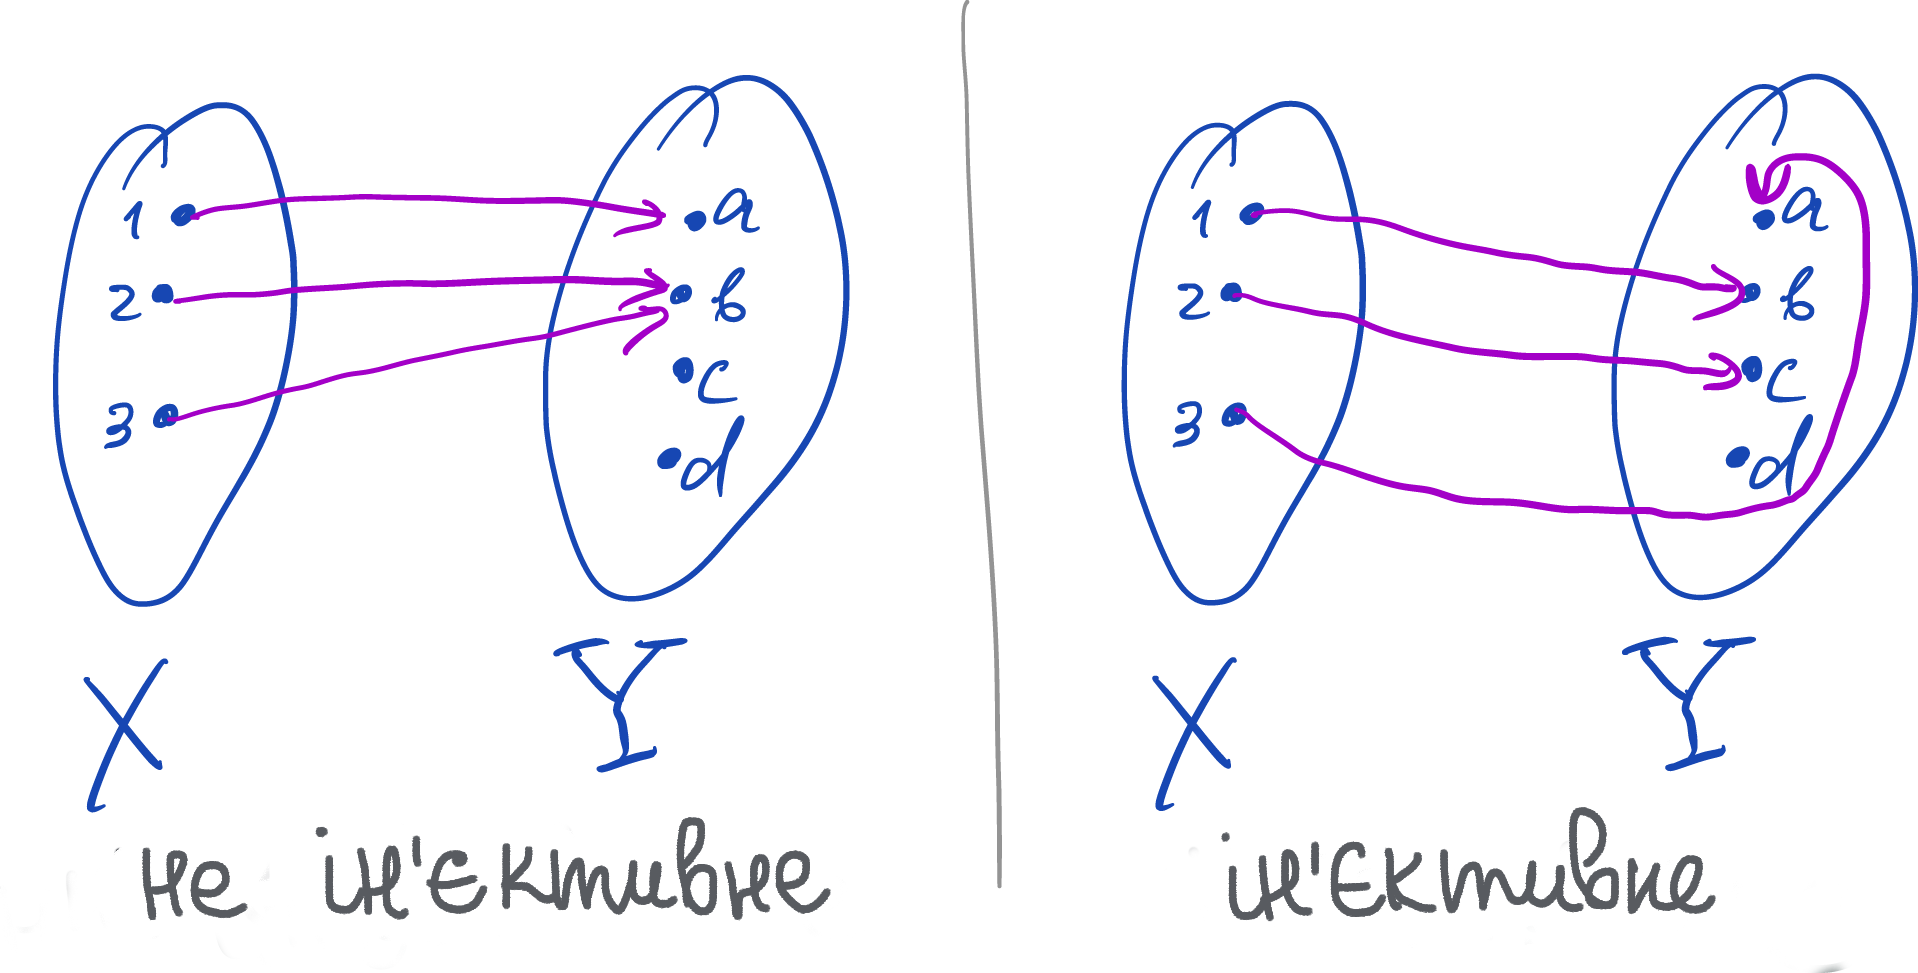 1
2
3
a
b
c
d
X
Y
не ін'єктивне
1
2
3
a
b
c
d
X
Y
ін'єктивне